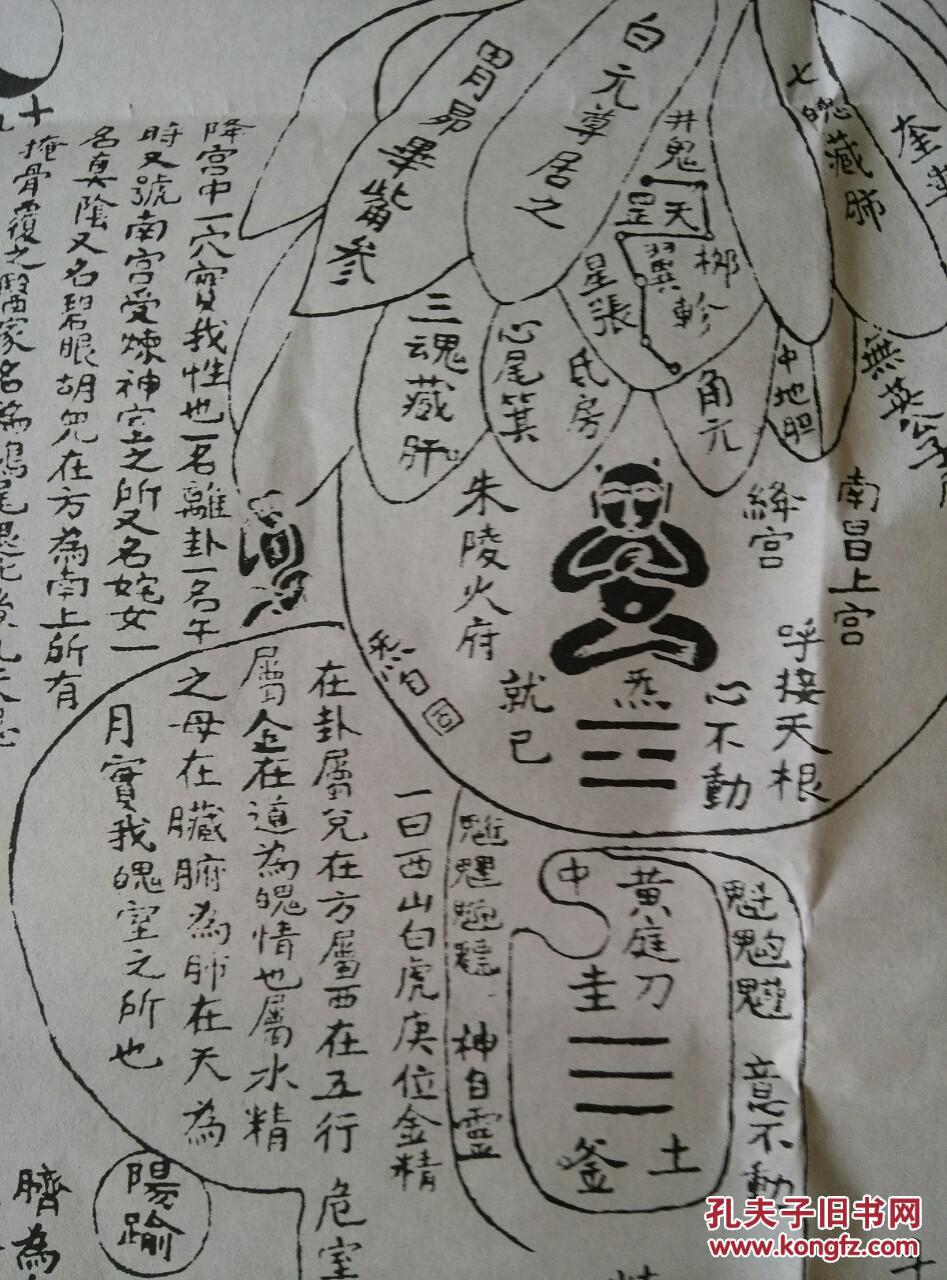 奎
七魄藏肺
白元尊居之
胃昴畢觜參
井鬼
天罡
柳
翼軫
星張
三魂藏肝
心尾箕
氐房
角亢
中地胆
無英公子
南昌上宮
絳宮
朱陵火府
呼接天根
心不動
炁
就己
降宮中一穴實我性也一名離卦一名午
時又號南宮受煉神宮之所又名姹女一
名真陰又名碧眼胡兒在方為南上所有
十
掩骨覆之醫家名為鳩尾
一曰西山白虎庚位金精
在卦屬兌在方屬西在五行
屬金在道為魄情也屬水精
之母在臟腑為肺在天為
月實我魄室之所也
魁
意不動
中
黃庭刀
圭
土
釜
神自靈
危室
陽踰
臍為
孔夫子旧书网
www.kongfz.com